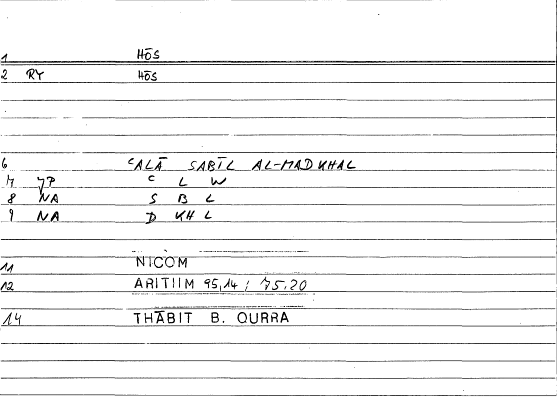 1 HŌS
2 RY HŌS
6 ʿALĀ SABĪL AL-MADKHAL
7 JP ʿ L W
8 NA S B L
9 NA D KH L
11 NICOM
12 ARITIIM 95,14 ; 75.20
14 THĀBIT B. QURRA